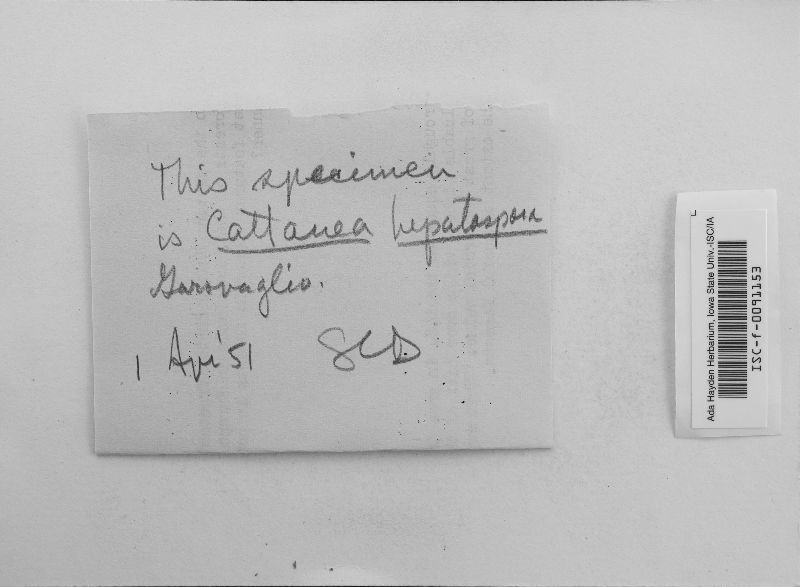 This specimen
is Cattanea heptaspora
Garovaglio.
1 Apr '51 SCD
Ada Hayden Herbarium, Iowa State Univ.-ISC/IA
ISC-f-0091153